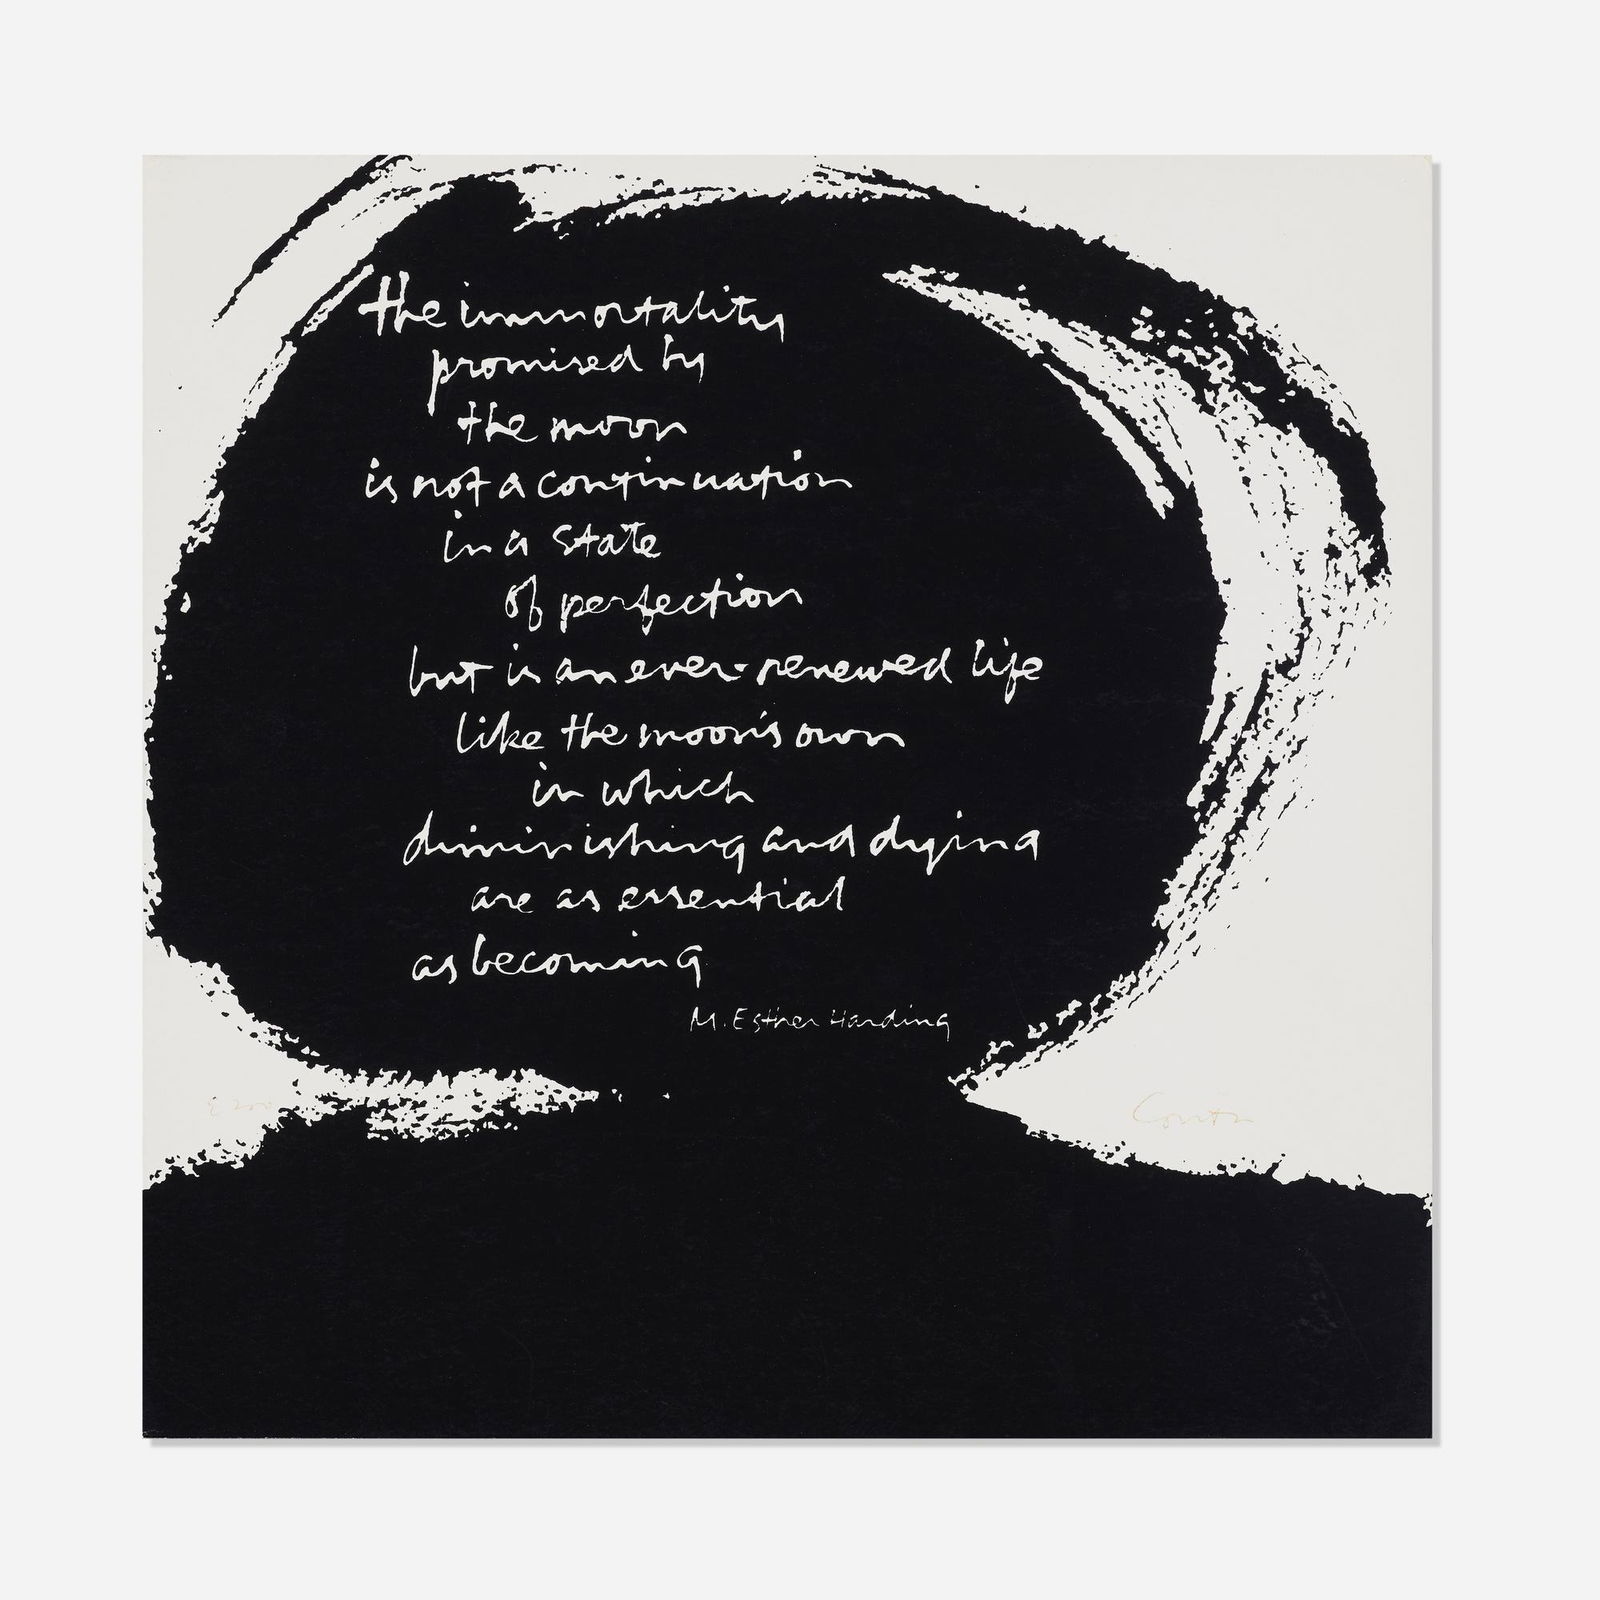 the immortality
promised by
the moon
is not a continuation
in a state
of perfection
but is an ever-renewed life
like the moon's own
in which
diminishing and dying
are as essential
as becoming
M. Esther Harding